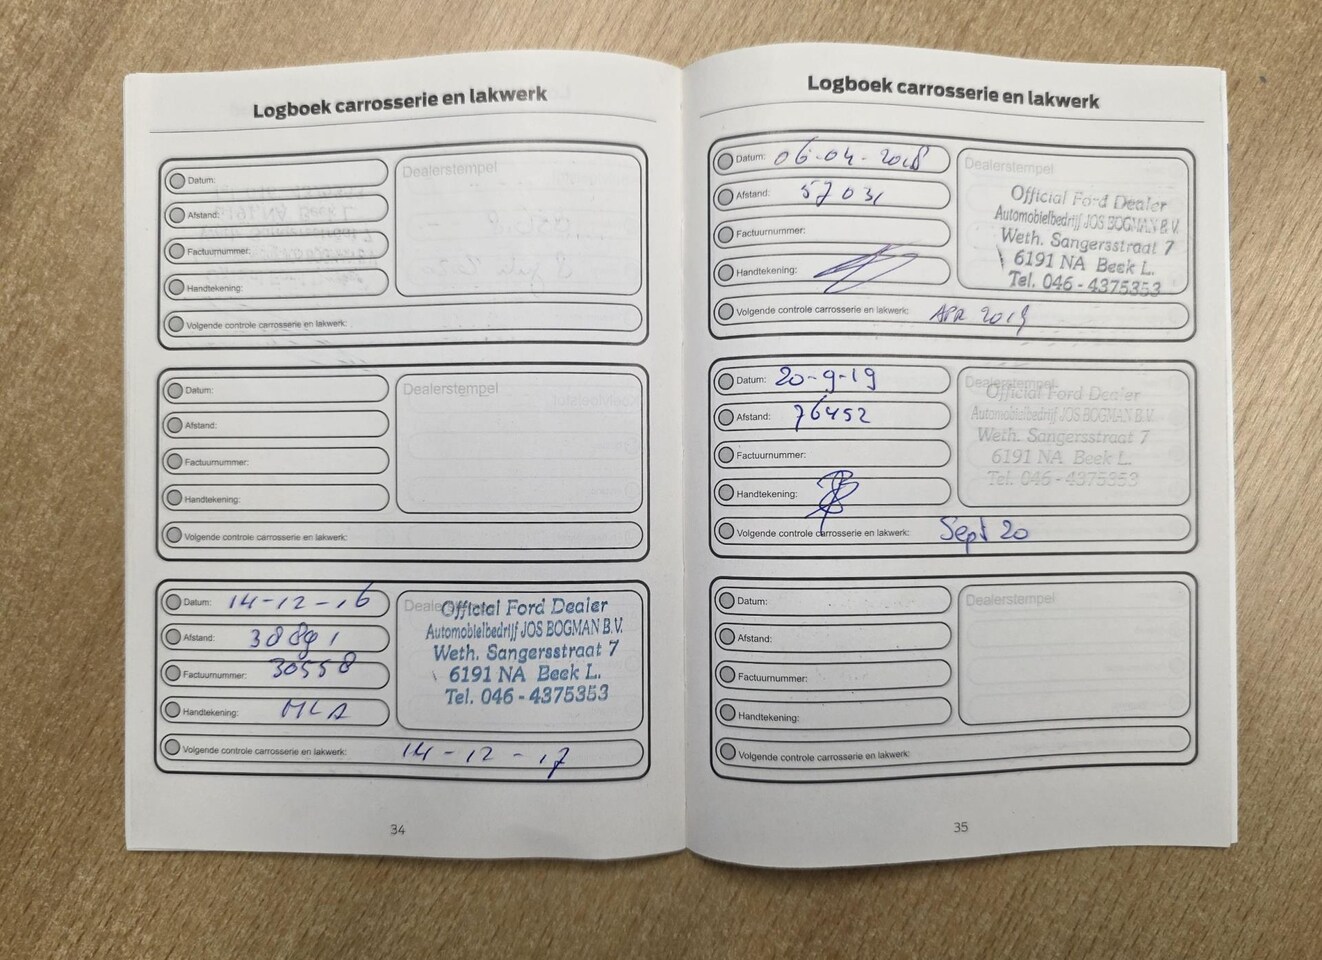 Logboek carrosserie en lakwerk
Datum:
Afstand:
Factuurnummer:
Handtekening:
Dealerstempel
Volgende controle carrosserie en lakwerk:
Datum:
Afstand:
Factuurnummer:
Handtekening:
Dealerstempel
Volgende controle carrosserie en lakwerk:
Datum: 14-12-16
Afstand: 38891
Factuurnummer: 30558
Handtekening: MLA
Official Ford Dealer
Automobielbedrijf JOS BOGMAN B.V.
Weth. Sangersstraat 7
6191 NA Beek L.
Tel. 046 - 4375353
Volgende controle carrosserie en lakwerk: 14-12-17
34
Logboek carrosserie en lakwerk
Datum: 06-04-2018
Afstand: 57031
Factuurnummer:
Handtekening:
Dealerstempel
Official Ford Dealer
Automobielbedrijf JOS BOGMAN B.V.
Weth. Sangersstraat 7
6191 NA Beek L.
Tel. 046 - 4375353
Volgende controle carrosserie en lakwerk: APR 2019
Datum: 20-9-19
Afstand: 76452
Factuurnummer:
Handtekening:
Dealerstempel
Official Ford Dealer
Automobielbedrijf JOS BOGMAN B.V.
Weth. Sangersstraat 7
6191 NA Beek L.
Tel. 046 - 4375353
Volgende controle carrosserie en lakwerk: Sept 20
Datum:
Afstand:
Factuurnummer:
Handtekening:
Dealerstempel
Volgende controle carrosserie en lakwerk:
35